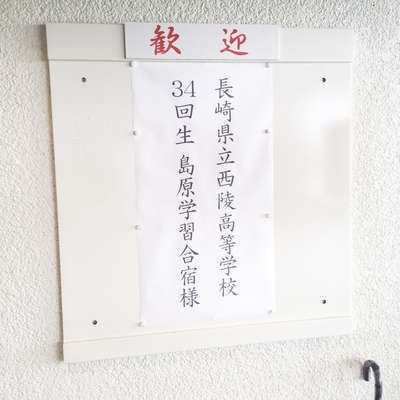 歓迎
長崎県立西陵高等学校
34回生 島原学習合宿様